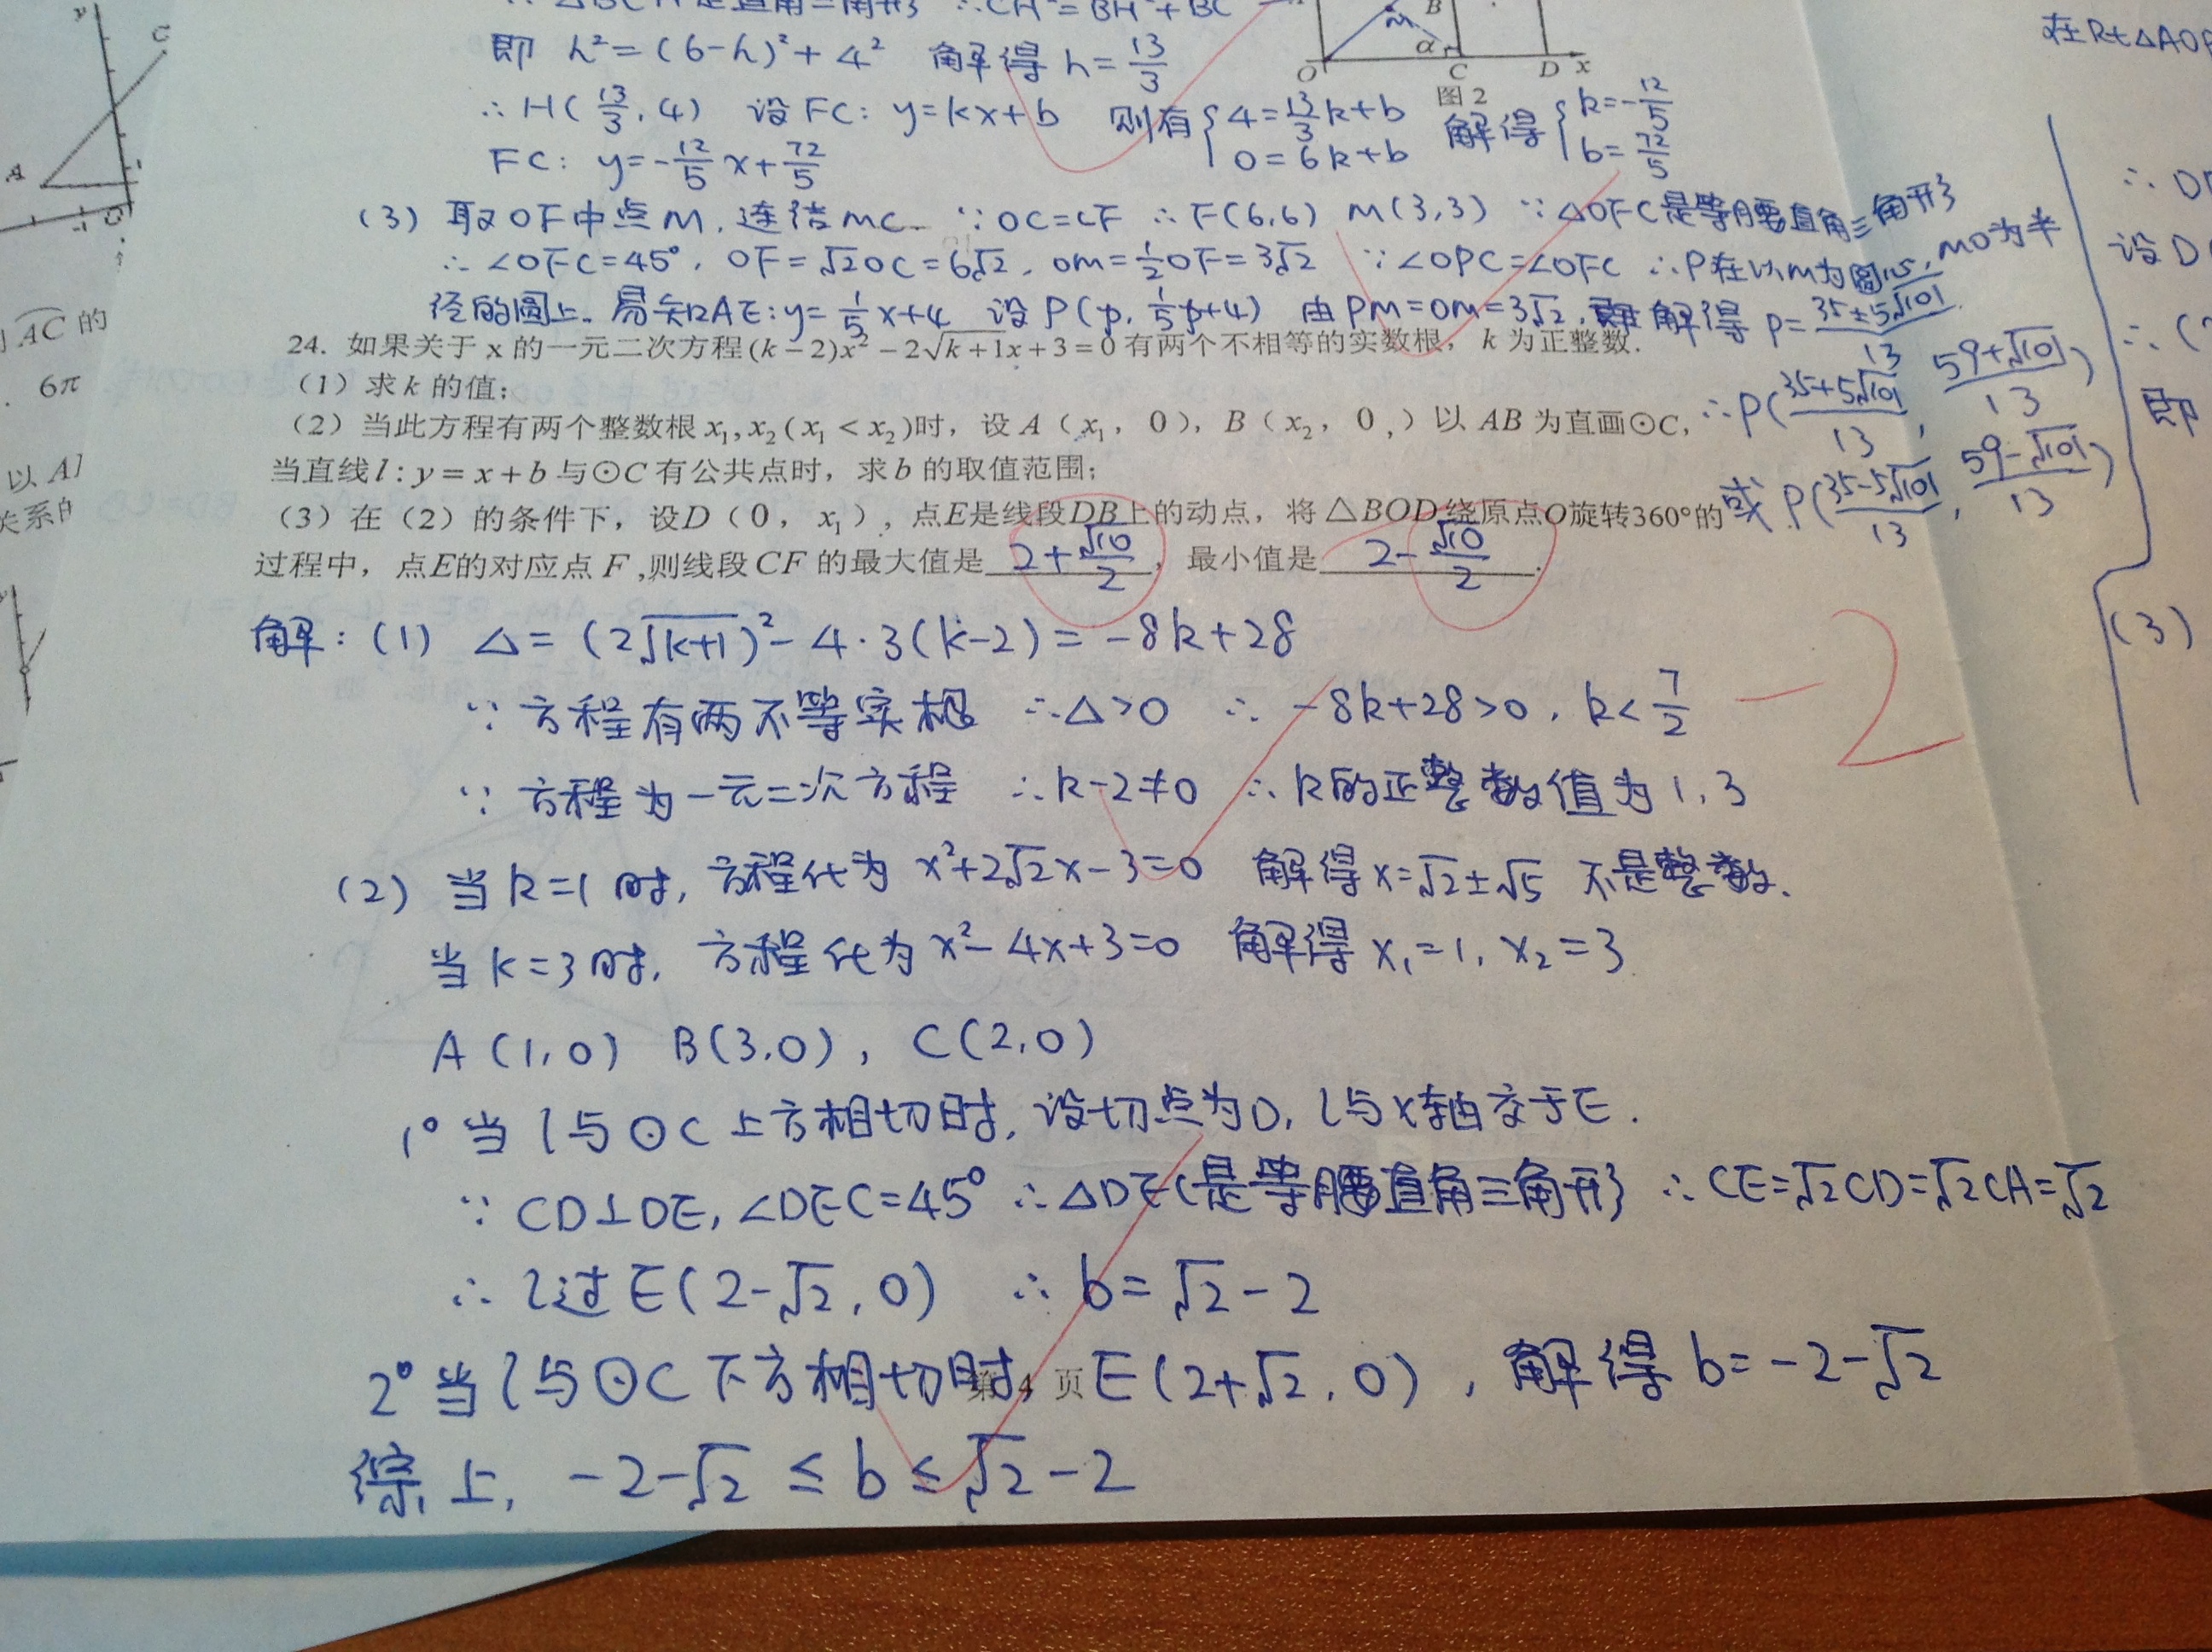 ∴ △BCH是直角三角形 ∴CH²=BH²+BC
即 h²=(6-h)²+4² 解得 h=13/3
∴H(13/3,4) 设FC: y=kx+b 则有{4=13/3k+b 0=6k+b 解得{k=-12/5 b=72/5
FC: y=-12/5x+72/5
O C D x
B m α
图2
(3) 取OF中点M,连结MC. ∵OC=CF ∴F(6,6) M(3,3) ∵△OFC是等腰直角三角形
∴∠OFC=45°, OF=√2OC=6√2, OM=1/2OF=3√2 ∵∠OPC=∠OFC ∴P在以M为圆心,MO为半
径的圆上. 易知AE:y=1/5x+4 设P(p,1/5p+4) 由PM=OM=3√2, 解得 p=(35±5√101)/13
∴P((35+5√101)/13, (59+√101)/13)
或P((35-5√101)/13, (59-√101)/13)
24. 如果关于x的一元二次方程(k-2)x²-2√(k+1)x+3=0有两个不相等的实数根, k为正整数.
(1)求k的值;
(2)当此方程有两个整数根x₁,x₂(x₁<x₂)时,设A(x₁,0),B(x₂,0,)以AB为直画⊙C,
当直线l:y=x+b与⊙C有公共点时,求b的取值范围;
(3)在(2)的条件下,设D(0,x₁),点E是线段DB上的动点,将△BOD绕原点O旋转360°的
过程中,点E的对应点F,则线段CF的最大值是 2+√10/2 , 最小值是 2-√10/2 .
解:(1) △=(2√(k+1))²-4·3(k-2)=-8k+28
∵方程有两不等实根 ∴△>0 ∴-8k+28>0, k<7/2
-2
∵方程为一元二次方程 ∴k-2≠0 ∴k的正整数值为1,3
(2) 当k=1时,方程化为 x²+2√2x-3=0 解得x=√2±√5 不是整数.
当k=3时,方程化为x²-4x+3=0 解得x₁=1, x₂=3
A(1,0) B(3,0), C(2,0)
1° 当l与⊙C上方相切时,设切点为D, l与x轴交于E.
∵CD⊥DE,∠DEC=45° ∴△DEC是等腰直角三角形 ∴CE=√2CD=√2CA=√2
∴l过E(2-√2,0) ∴b=√2-2
2° 当l与⊙C下方相切时, E(2+√2,0), 解得b=-2-√2
第 4 页
综上, -2-√2≤b≤√2-2
y
C
A
-1 O
AC的
6π
以A
关系的
在Rt△AO
设D
即
(3)